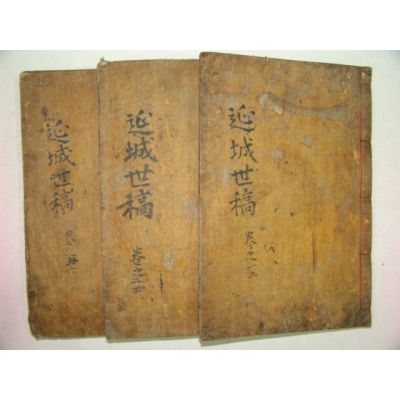 延城世稿
卷之一二
延城世稿
卷之三四
延城世稿
卷之五六